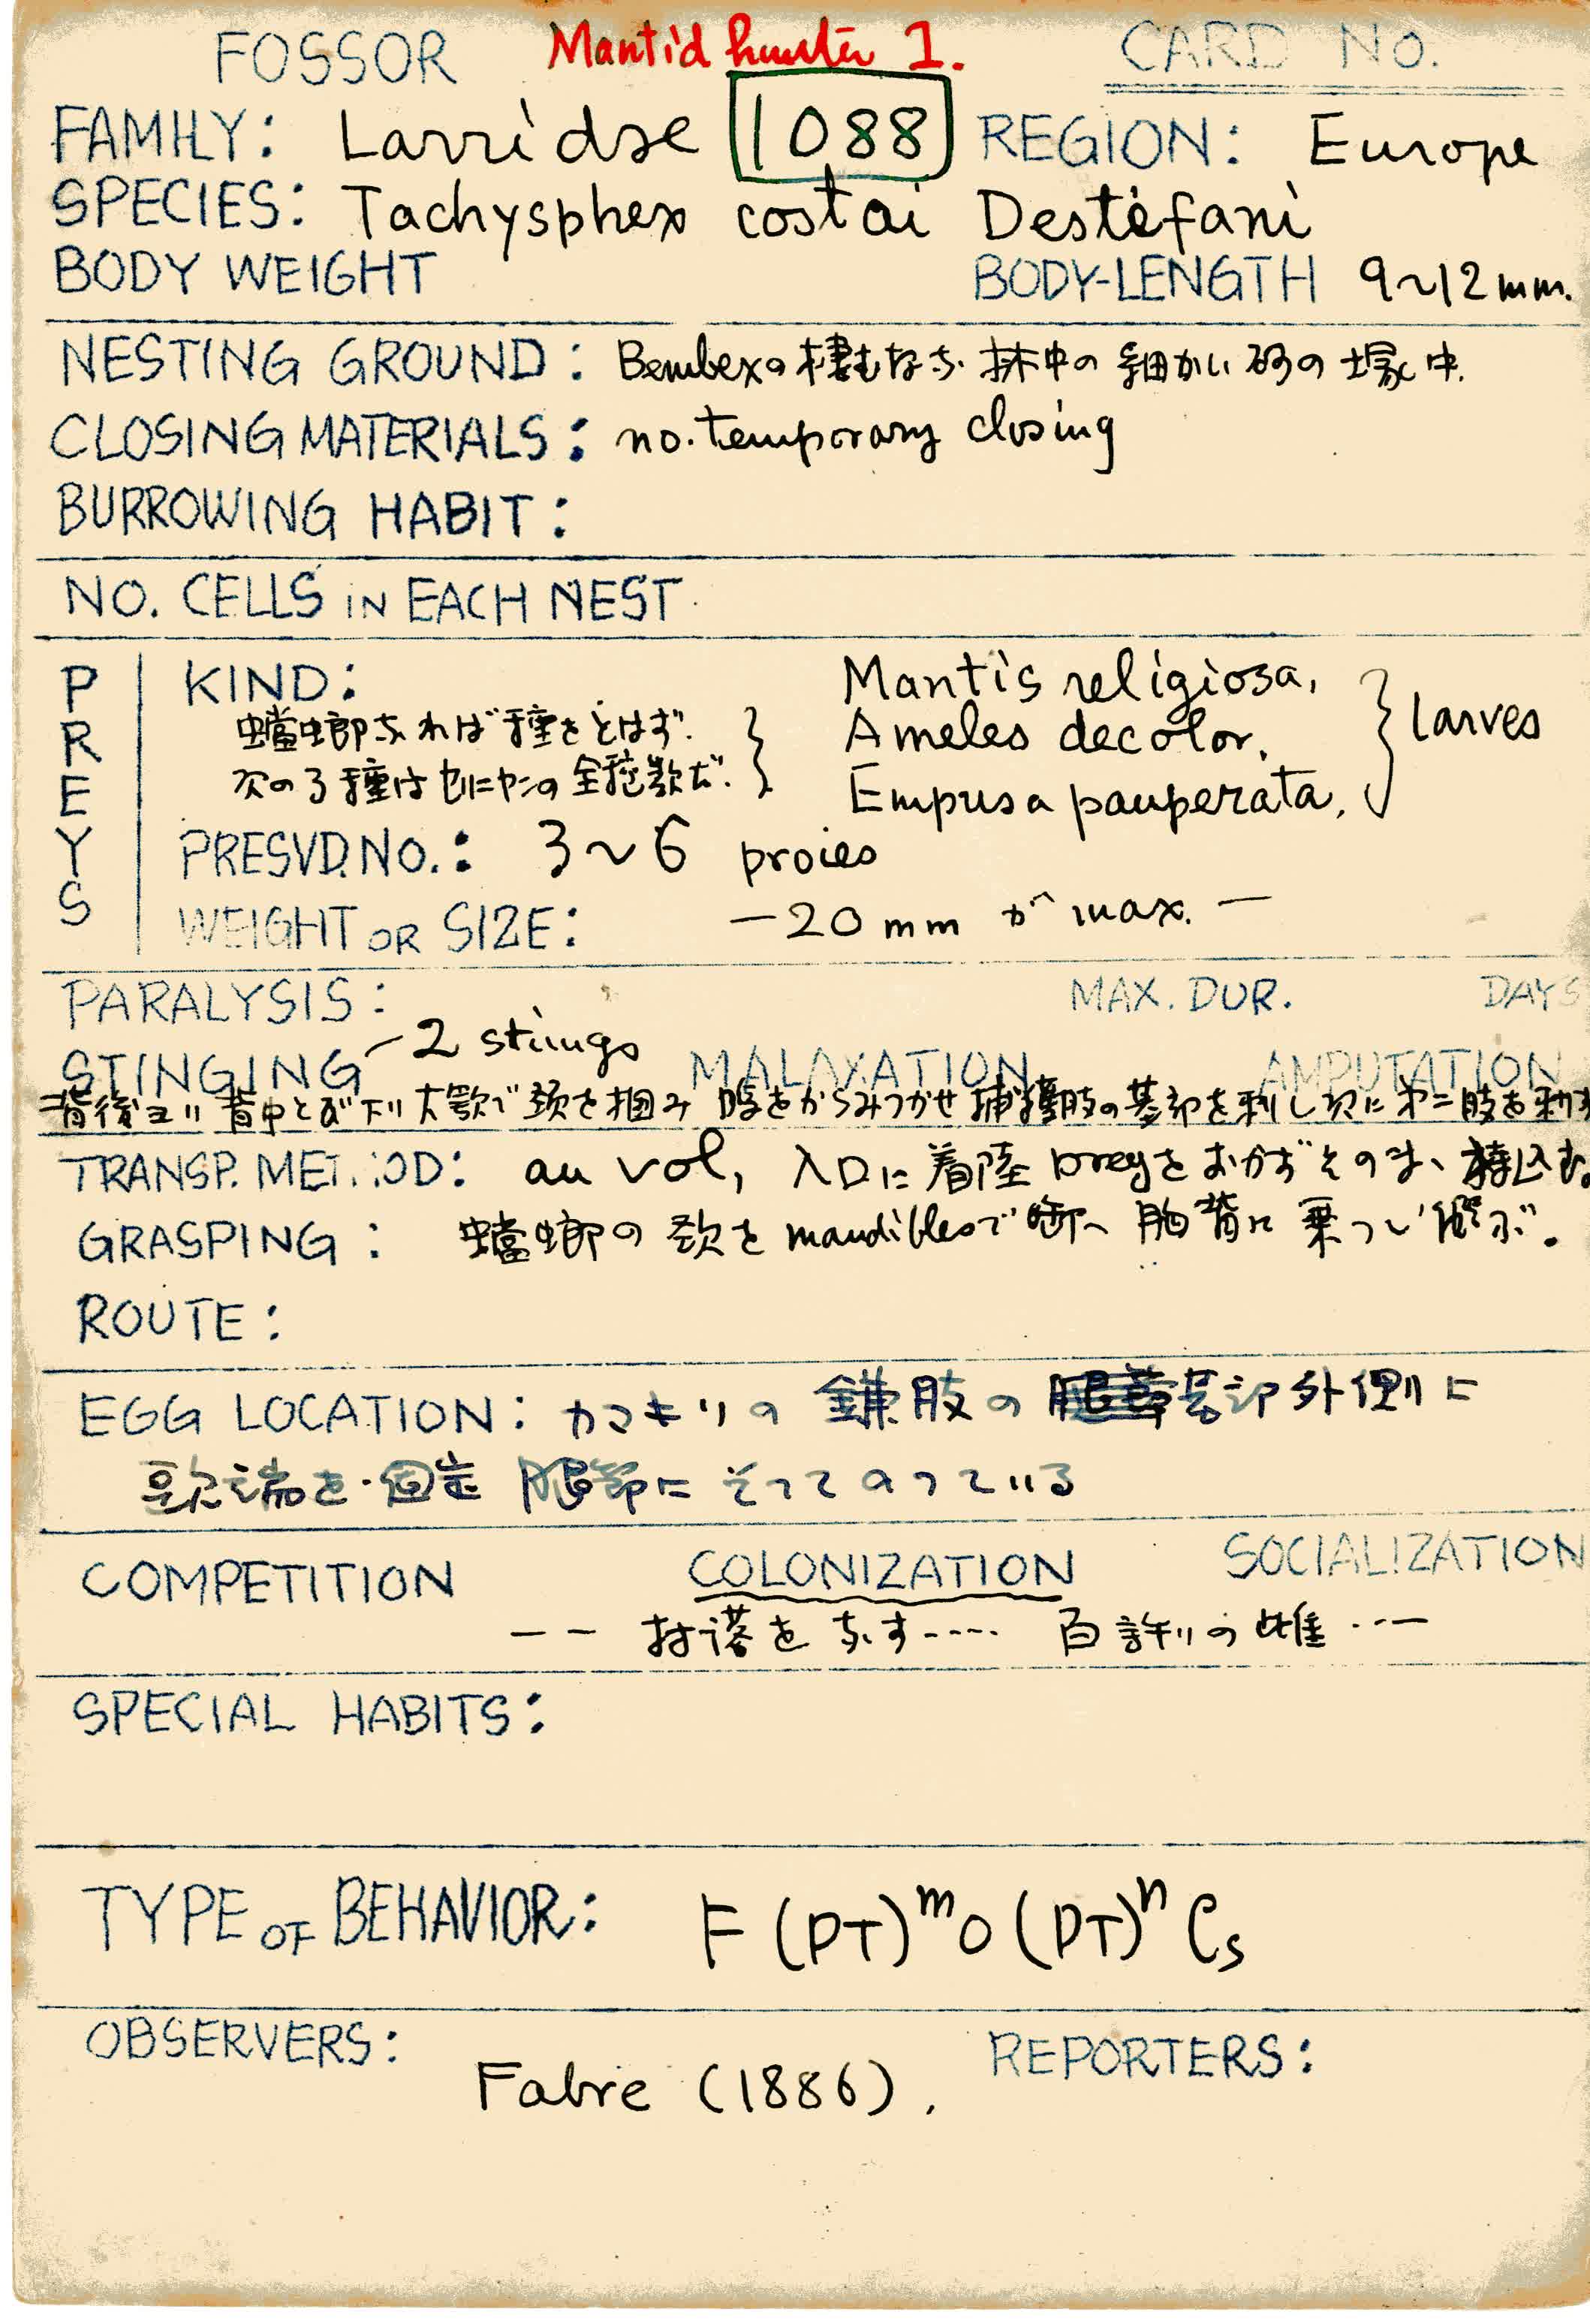 FOSSOR Mantid hunter 1. CARD NO.
FAMILY: Larridae 1088 REGION: Europe
SPECIES: Tachysphex costai Destéfani
BODY WEIGHT BODY-LENGTH 9~12mm.
NESTING GROUND: Bembexの棲むなら 林中の細かい砂の塚中.
CLOSING MATERIALS: no. temporary closing
BURROWING HABIT:
NO. CELLS IN EACH NEST
PREYS
KIND: Mantis religiosa,
蟷螂ならば種をとはず. Ameles decolor, larves
次の3種はセリニヤンの全種数だ. Empusa pauperata,
PRESVD.NO.: 3~6 proies
WEIGHT OR SIZE: —20mm が max.—
PARALYSIS: MAX. DUR. DAYS
STINGING —2 stings MALAXATION AMPUTATION
背後ヨリ背中とび下リ大顎で頚を掴み 腹をからみつかせ捕獲肢の基部を刺し次に第二肢を刺す
TRANSP. METHOD: au vol, 入口に着陸 preyをおかずそのまゝ持込む。
GRASPING: 蟷螂の頚をmandiblesで 胸背に乗つて飛ぶ.
ROUTE:
EGG LOCATION: カマキリの鎌肢の 基部外側に
頭端を固定 腿節にそってのっている
COMPETITION COLONIZATION SOCIALIZATION
—— 村落をなす.... 百許りの雌...—
SPECIAL HABITS:
TYPE OF BEHAVIOR: F (PT)ᵐO (PT)ⁿ Cs
OBSERVERS: REPORTERS:
Fabre (1886).